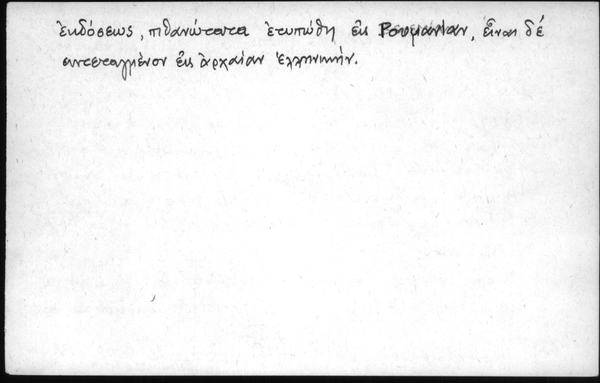 ἐκδόσεως, πιθανώτατα ἐτυπώθη εἰς Ρουμανίαν, εἶναι δέ
συντεταγμένον εἰς ἀρχαίαν ἑλληνικήν.